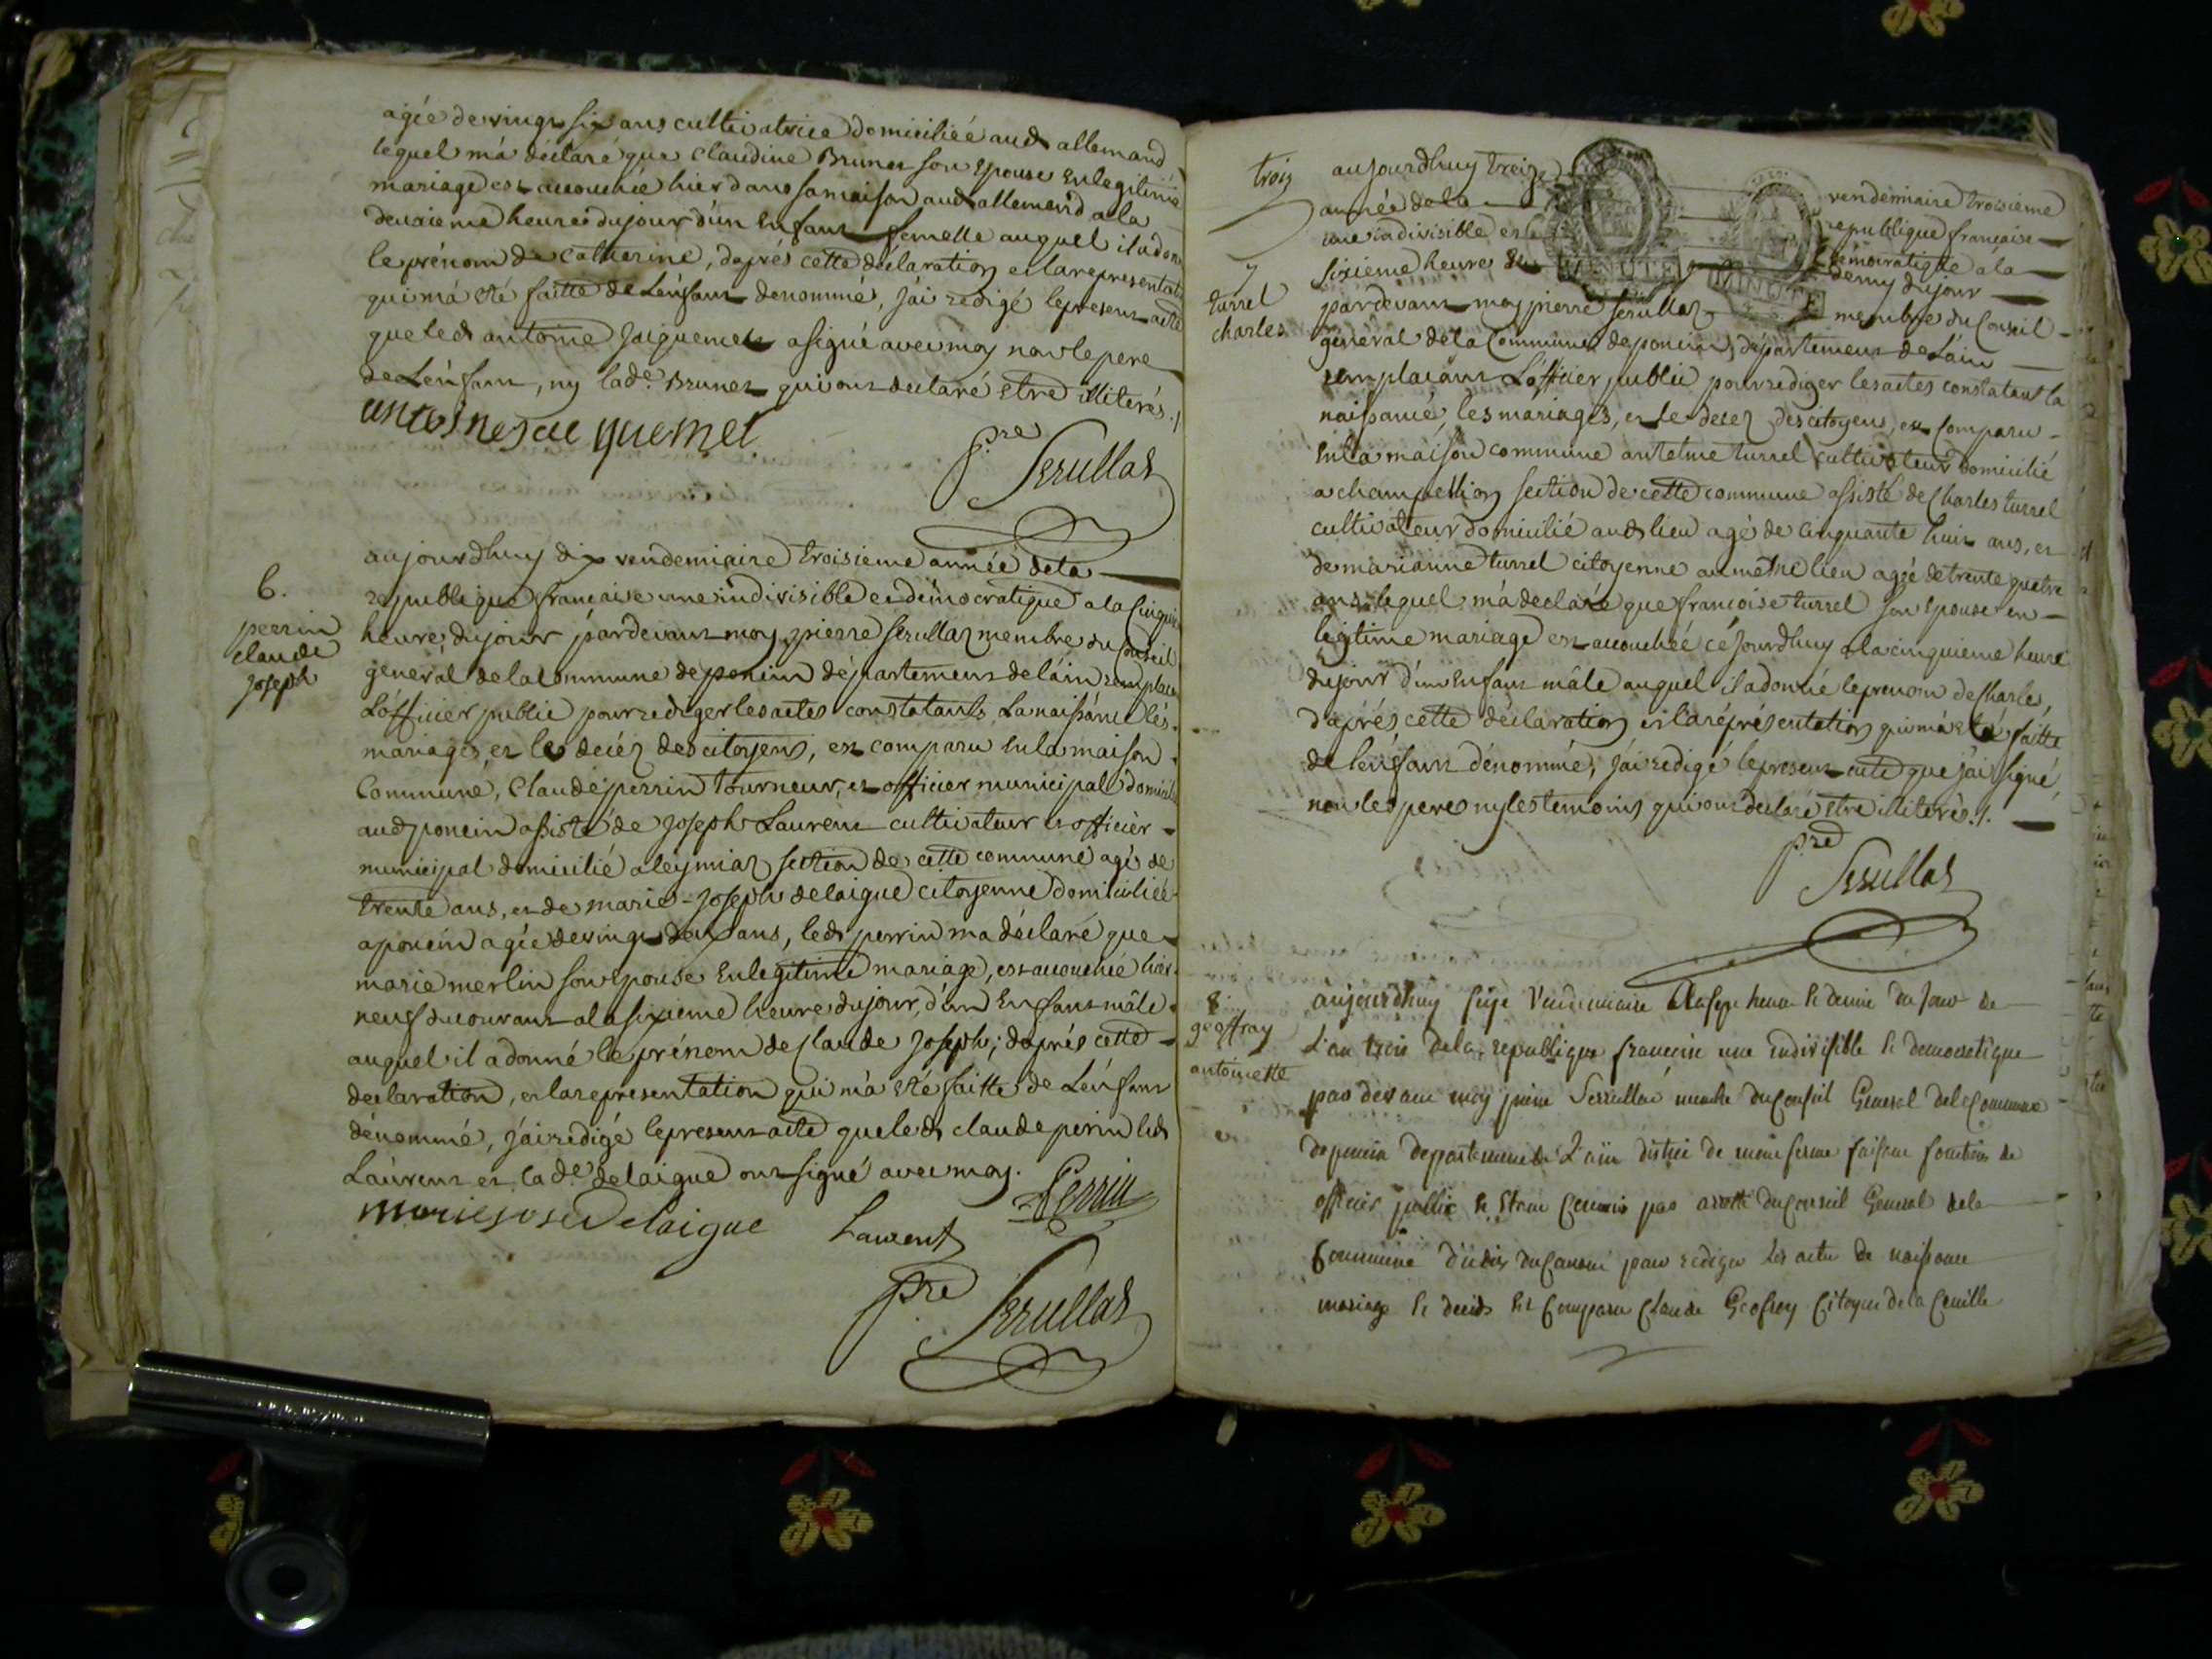 agée de vingt six ans cultivatrice domiciliéé aud allemand
lequel m'a déclaré que Claudine Brunet son epouse en legitime
mariage est accouchée hier dans sa maison aud allemand a la
deuxieme heure du jour d'un enfant femelle auquel il a donné
le prénom de Catherine, d'aprés cette déclaration et la representation
qui m'a eté faitte de L'enfant denommé, j'ai redigé le present acte
que led antoine Jaquemet a signé avec moy non le pere
de L'enfant, ny lad.e Brunet qui ont declaré etre illiterés ./.
antoine jacquemet
P.re Serullas
6.
perrin
claude
joseph
aujourdhuy dix vendemiaire troisieme année de la
republique francaise une indivisible et démocratique a la Cinquie
heure du jour pardevant moy pierre serullaz membre du Conseil
general de la Commune de poncin département de láin remplacant
L'officier public pour rediger les actes constatants La naissance les
mariages, et les décéz des citoyens, est comparu en la maison
Commune, Claude perrin tourneur, et officier municipal domicilié
aud poncin assisté de Joseph Laurent cultivateur et officier
municipal domicilié a leymiaz section de cette commune agé de
trente ans, et de marie-Joseph delaigue citoyenne domiciliéé
a poncin agée de vingt deux ans, led perrin m'a déclaré que
marie merlin son epouse en legitime mariage, est accouchée hier
neuf du courant a la sixieme heure du jour, d'un enfant mâle
auquel il a donné le prénom de Claude Joseph; d'aprés cette
declaration, et la representation qui m'a eté faitte de L'enfant
dénommé, j'ai redigé le present acte que led claude perin led
Laurent et lad.e delaigue ont signé avec moy.
Perrin
marie josed Delaigue Laurent
P.re Serullas
troiz
aujourdhuy treize vendemiaire troisieme
année de la republique francaise
une indivisible et démocratique a la
sixieme heure et demy du jour
MINUTE MINUTE
7
turrel
charles
pardevant moy pierre serullaz membre du Conseil
general de la Commune de poncin, département de L'ain
remplacant L'officier public pour rediger les actes constatant la
naissance, les mariages, et le decez des citoyens, est Comparu
en la maison commune antelme turrel cultivateur domicilié
a champeillon section de cette commune assisté de Charles turrel
cultivateur domicilié aud lieu agé de cinquante huit ans, et
de marianne turrel citoyenne au meme lieu agée de trente quatre
ans lequel m'a declaré que francoise turrel son epouse en
legitime mariage est accouchéé cejourdhuy a la cinquieme heure
du jour d'un enfant mâle auquel il a donné le prenom de Charles,
d'aprés cette déclaration et la réprésentation qui m'a eté faitte
de L'enfant dénommé, j'ai redigé le present acte que j'ai signé,
non les peres ny les temoins qui ont declaré etre illiterés ./.
P.re Serullas
8
geoffray
antoinette
aujourdhuy seize Vendemiaire a la sept heure & demie du jour de
L'an trois de la republique francaise une indivisible & democratique
par devant moy pierre Serrullas membre du Conseil General de la Commune
de poncin departement de L'ain district de montferme faisant fonction de
officier public & etant Commis par arreté du Conseil General de la
Commune du dix du Courant pour rediger les actes de naissance
mariage & decés est Comparu Claude Geofray Citoyen de la Cueille